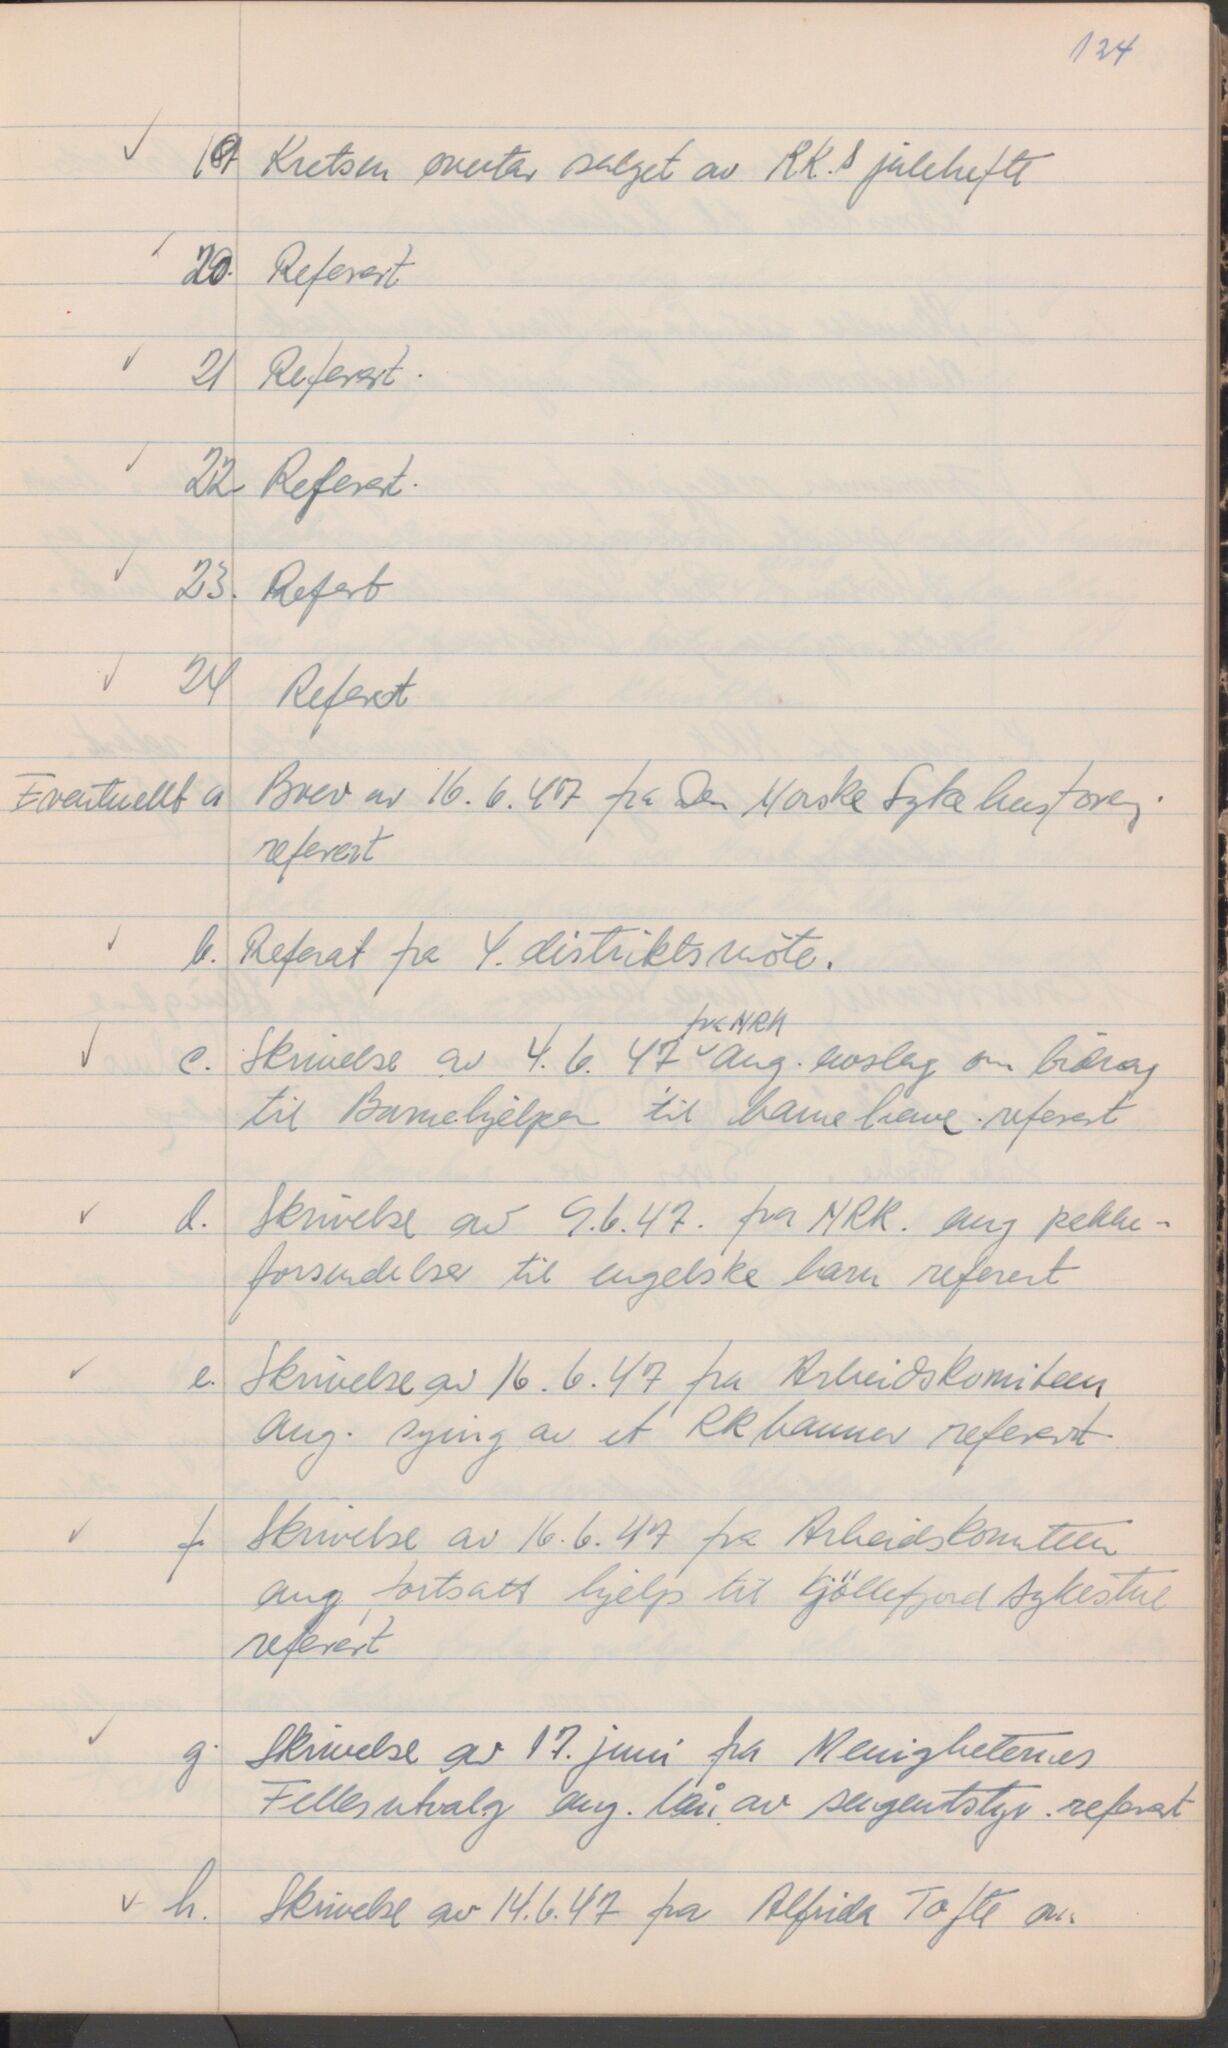 124
19 Kretsen overtar salget av R.K.s julehefte
20. Referert
21 Referert.
22 Referert.
23. Refert
24 Referert
Eventuellt a Brev av 16.6.47 fra Den Norske Sykehusforen.
referert
b. Referat fra 4. distriktsmöte.
fra NRK
c. Skrivelse av 4.6.47 ang. om bidrag
til Barnehjelpen til barnehave. referert
d. Skrivelse av 9.6.47. fra NRK. ang pakke-
forsendelser til engelske barn referert
e. Skrivelse av 16.6.47 fra Arbeidskomiteen
ang. sying av et RKbanner referert.
f. Skrivelse av 16.6.47 fra Arbeidskomiteen
ang. fortsatt hjelp til Kjöllefjord sykestue
referert
g. Skrivelse av 17. juni fra Menigheternes
Fellesutvalg ang. lån av sengeutstyr. referert
h. Skrivelse av 14.6.47 fra Alfrida Tofte om